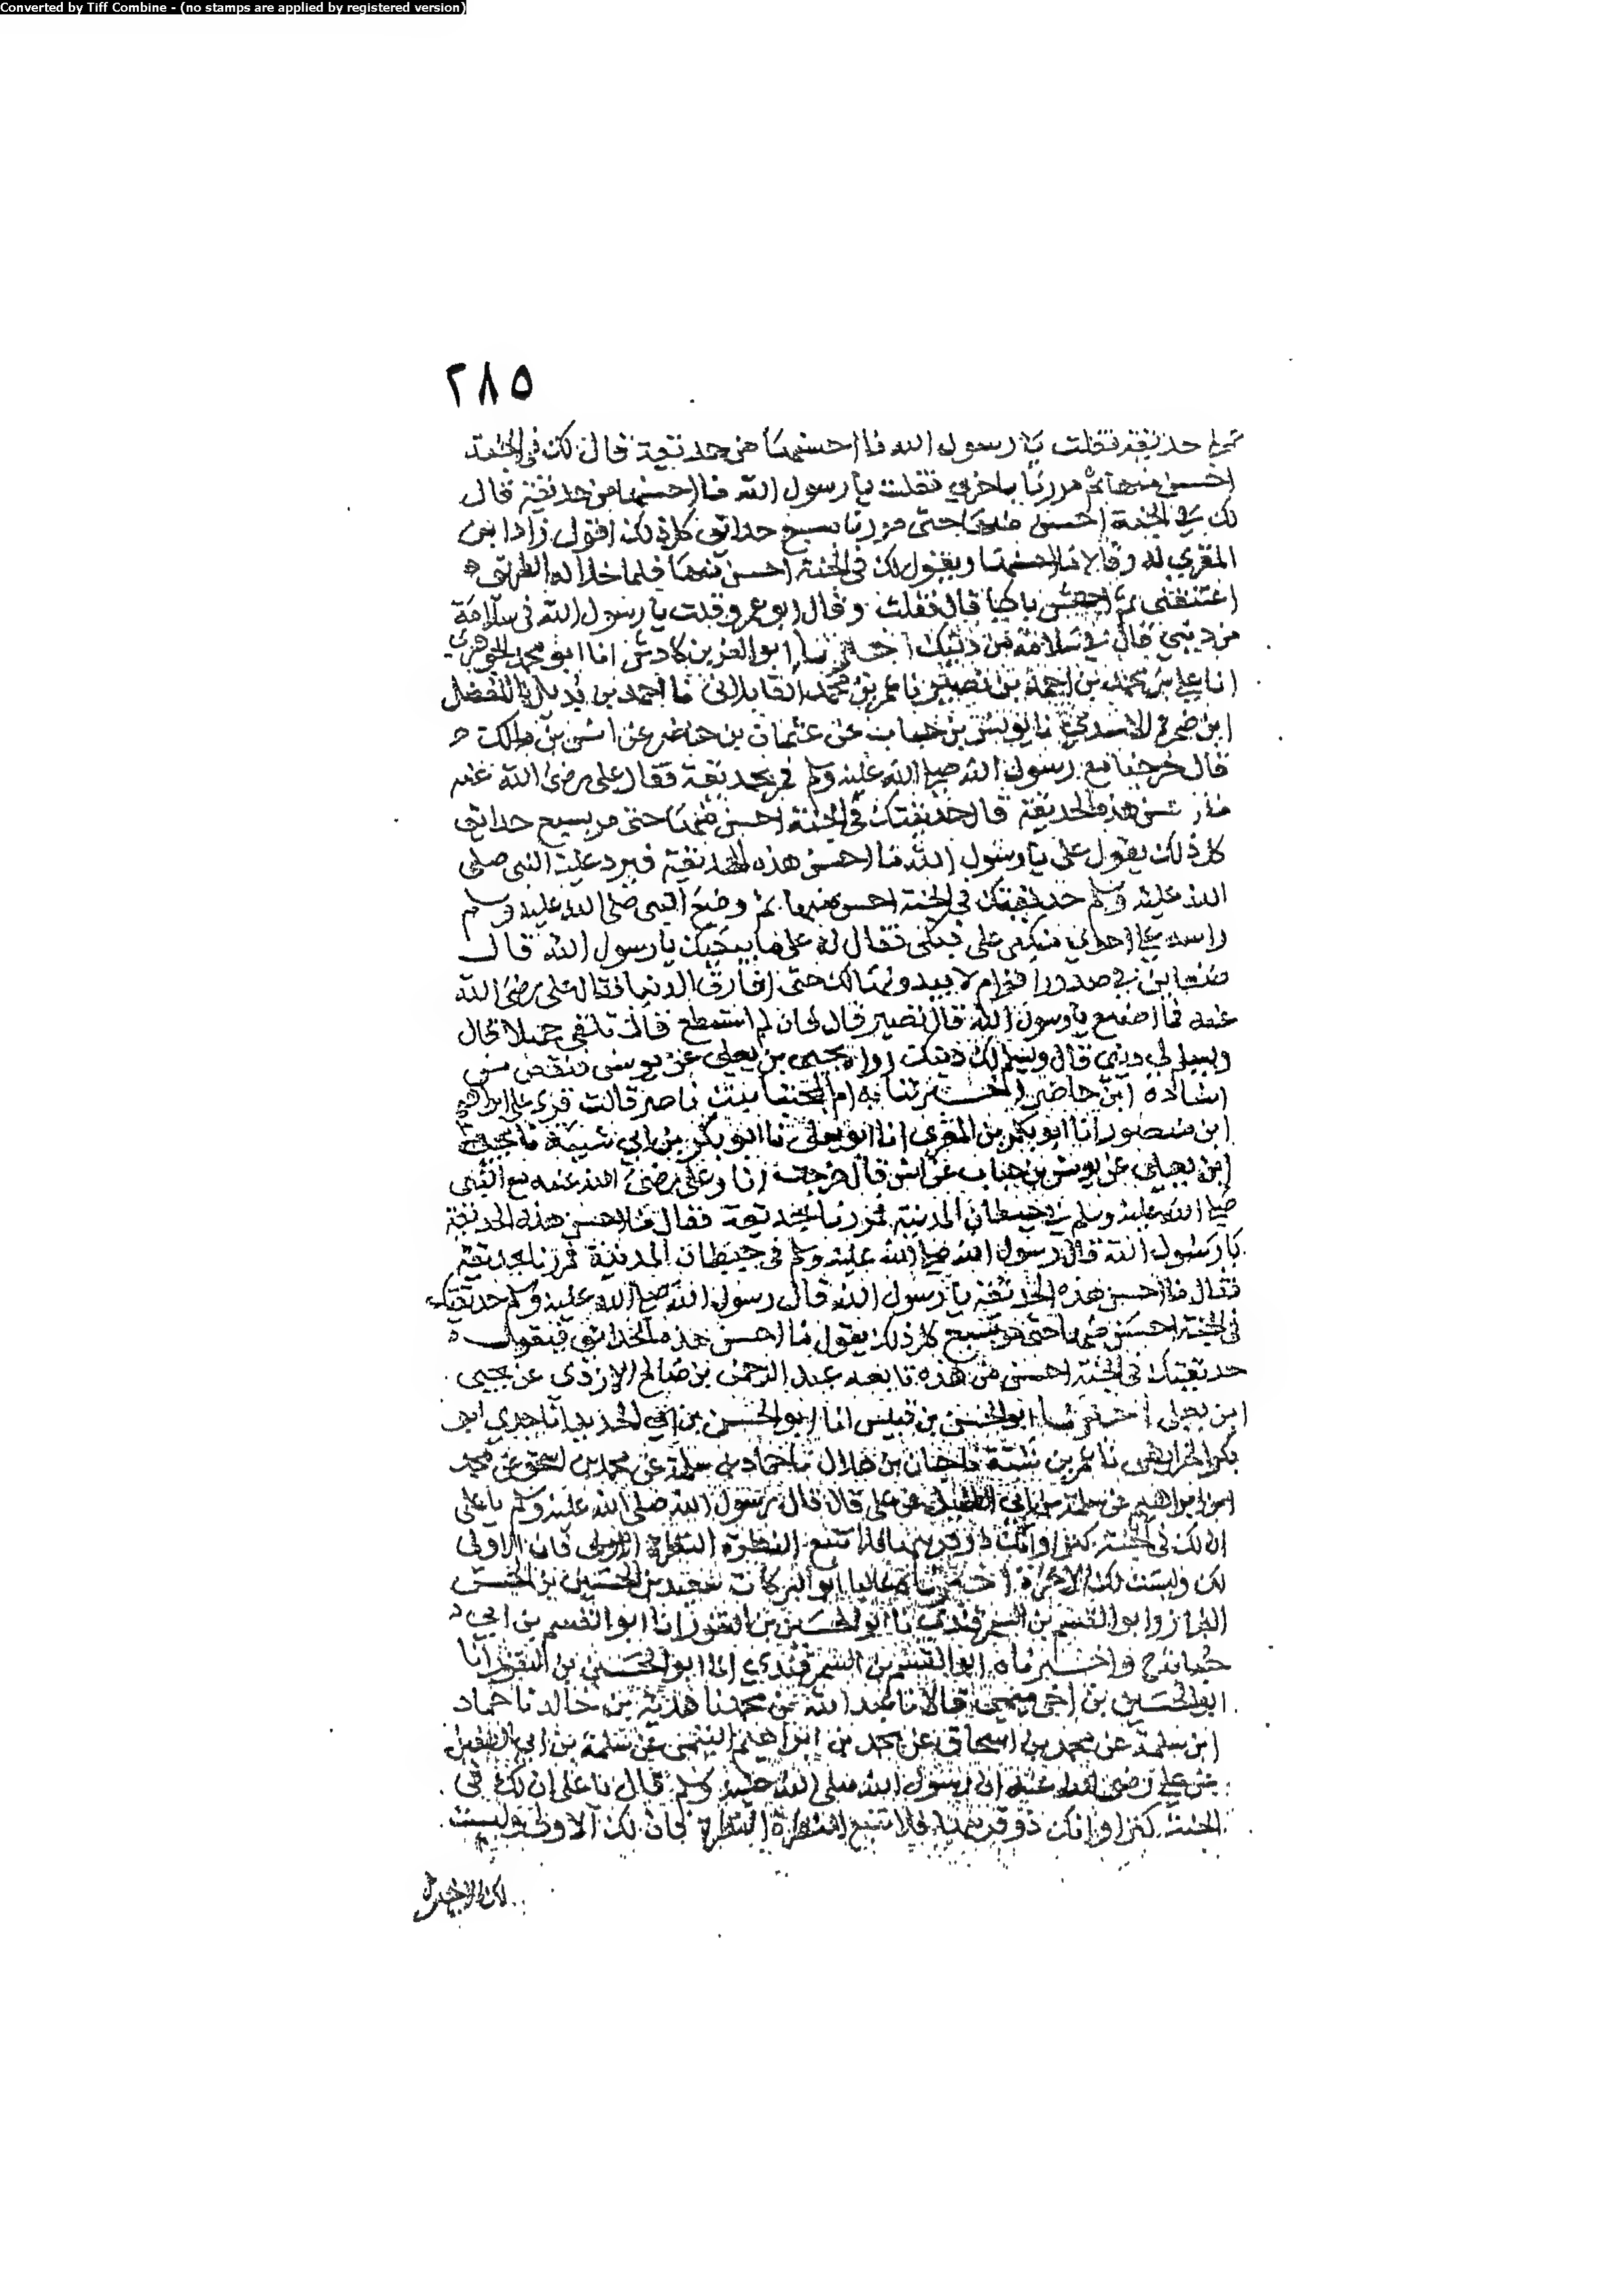 Converted by Tiff Combine - (no stamps are applied by registered version)
٢٨٥
حديقة فقلت يا رسول الله ما احسنها من حديقة قال لك في الجنة
احسن منها ثم مررنا باخرى فقلت يا رسول الله ما احسنها من حديقة قال
لك في الجنة احسن منها حتى مررنا بسبع حدائق كل ذلك اقول زاد ابن
المقري له وقالا ما احسنها ويقول لك في الجنة احسن منها فلما خلا له الطريق
اعتنقني ثم اجهش باكيا قال فقلت وقال ابو عمرو قلت يا رسول الله في سلامة
من ديني قال في سلامة من دينك اخبرنا ابو العز بن كادش انا ابو محمد الجوهري
انا علي بن محمد بن احمد بن نصير نا عمر بن محمد القافلاني نا احمد بن بديل نا المفضل
ابن الاسدي نا يونس بن خباب عن عثمان بن حاضر عن انس بن مالك
قال خرجنا مع رسول الله صلى الله عليه وسلم فمر بحديقة فقال علي رضى الله عنه
هذه الحديقة قال حديقتك في الجنة احسن منها حتى مر بسبع حدائق
كل ذلك يقول على يا رسول الله ما احسن هذه الحديقة فيرد عليه النبى صلى
الله عليه وسلم حديقتك في الجنة احسن منها ثم وضع النبى صلى الله عليه وسلم
راسه على احدى منكبى على فبكى فقال له على ما يبكيك يا رسول الله قال
ضغاين في صدور اقوام لا يبدونها لك حتى افارق الدنيا فقال على رضى الله
عنه فما اصنع يا رسول الله قال تصبر قال فان لم استطع قال تلقى جميلا قال
ويسلم لي ديني قال ويسلم لك دينك رواه يحيى بن يعلى عن يونس فنقص من
اسناده ابن حاضر اخبرتنا به ام المجتبا بنت ناصر قالت قرئ على ابراهيم
ابن منصور انا ابو بكر بن المقرى انا ابو يعلى نا ابو بكر بن ابي شيبة نا يحيى
ابن يعلى عن يونس بن خباب عن انس قال خرجت انا وعلى رضى الله عنه مع النبى
صلى الله عليه وسلم في حيطان المدينة فمررنا بحديقة فقال ما احسن هذه الحديقة
يا رسول الله قال رسول الله صلى الله عليه وسلم في حيطان المدينة فمررنا بحديقة
فقال ما احسن هذه الحديقة يا رسول الله قال رسول الله صلى الله عليه وسلم حديقتك
في الجنة احسن منها حتى مر بسبع كل ذلك يقول ما احسن هذه الحدائق فيقول
حديقتك في الجنة احسن من هذه تابعه عبد الرحمن بن صالح الازدى عن يحيى
ابن يعلى اخبرنا ابو الحسن بن قبيس انا ابو الحسن بن ابي الحديد انا جدي ابو
بكر الخرايطى نا عمر بن شبة نا حبان بن هلال نا حماد بن سلمة عن محمد بن اسحق عن محمد
ابن ابراهيم عن سلمة بن ابى الطفيل عن على قال قال رسول الله صلى الله عليه وسلم يا على
ان لك في الجنة كنزا وانك ذو قرنيها فلا تتبع النظرة النظرة الاولى فان الاولى
لك وليست لك الاخرة اخبرناه عاليا ابو البركات سعيد بن الحسين بن الحسن
البزاز وابو القسم بن السمرقندى نا ابو الحسين بن النقور انا ابو القسم بن ابي
حبابة ح واخبرناه ابو القسم بن السمرقندي انا ابو الحسين بن النقور انا
ابو الحسين بن اخى ميمى قالا نا عبد الله بن محمد نا هدبة بن خالد نا حماد
ابن سلمة عن محمد بن اسحاق عن محمد بن ابراهيم التيمى عن سلمة بن ابى الطفيل
عن على رضى الله عنه ان رسول الله صلى الله عليه وسلم قال يا على ان لك في
الجنة كنزا وانك ذو قرنيها فلا تتبع النظرة النظرة فان لك الاولى وليست
لك الاخرة